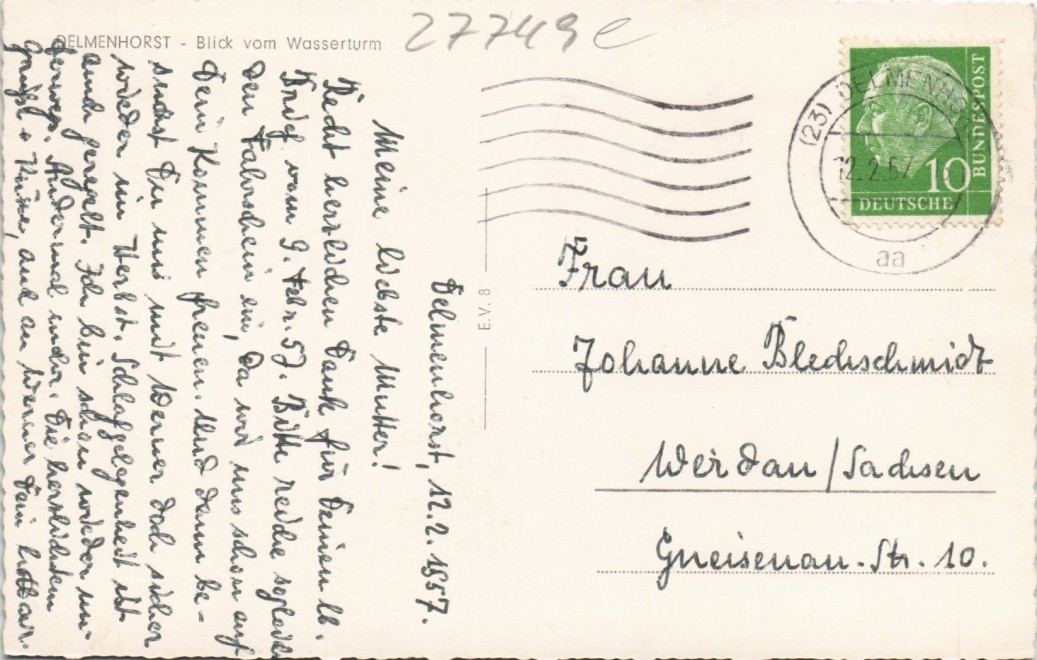 DELMENHORST - Blick vom Wasserturm
27749e
Delmenhorst, 12.2.1957.
Meine liebste Mutter!
Recht herzlichen Dank für Deinen lb.
Brief vom 9. Febr. 57. Bitte reiche sogleich
den Fahrschein ein, da wird uns schon auf
Dein Kommen freuen. Und dann be-
suchst Du uns mit Werner doch sicher
wieder im Herbst. Schlafgelegenheit ist
auch geregelt. Ich bin schon wieder un-
terwegs. Andermal mehr. Die herzlichsten
Grüße + Küsse, auch an Werner Dein
E.V. 8
(23) DELMENHORST
12.2.57
aa
10
DEUTSCHE
BUNDESPOST
Frau
Johanne Blechschmidt
Werdau/Sachsen
Gneisenau-Str. 10.